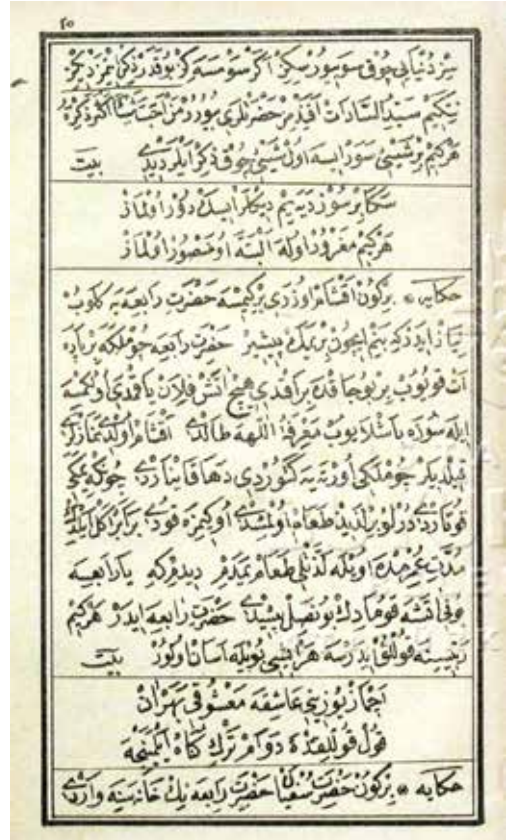 ٤٥
سز دنیایی چوق سوسورسکز اکر سوسه کز بوقدر ذکرن ایتمزدیکز
نتکیم سید السادات افندمز حضرتلری بیوردر من احب شیئا اکثر ذکره
هر کیم بر شیئی سورایسه اول شیئی چوق ذکر ایلر دیدی بیت
سکا بر سوز دیه یم دیکلر ایسک دور اولماز
هر کیم مغرور اوله البته او منصور اولماز
حکایه * بر کون اقشام اوزری بر کیمسه حضرت رابعه یه کلوب
نیاز ایدر که بنم ایچون بر یمک پیشیر حضرت رابعه چوملکه بر پاره
ات قویوب بر بوجاقده براقدی هیچ اتش فلان یاقمدی او کمسه
ایله سوزه باشلایوب معرفة اللهه طالدی اقشام اولدی نمازلرین
قیلدیلر چوملکی اورتیه کتوردی دها قایناردی چونکه یمکی
قوتاردی درلو بر لذیذ طعام اولمشدی او کیمزه قودی برابر اکل ایلدی
مدت عمرمده اویله لذتلی طعام یمدم دیدم که یا رابعه
بونی اتشه قومادک بو نصل پیشدی حضرت رابعه ایدر هر کیم
ربیسنه قوللق ایدرسه هر ایشی بویله اسان اولور بیت
اچماز یوزینی عاشقه معشوقی هر ان
قول قوللغنده دوام ترک کناه ایتمینجه
حکایه * بر کون حضرت سفیان حضرت رابعه نک خانه سنه واردی